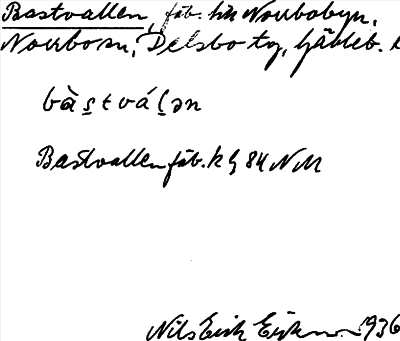 Bastvallen, fäb. till Norrbobyn,
Norrbo sn, Delsbo tg, Gävleb. l
bàs̱tváḻən
Bastvallen fäb. k G 84 NM
Nils Erik Eijk 1936